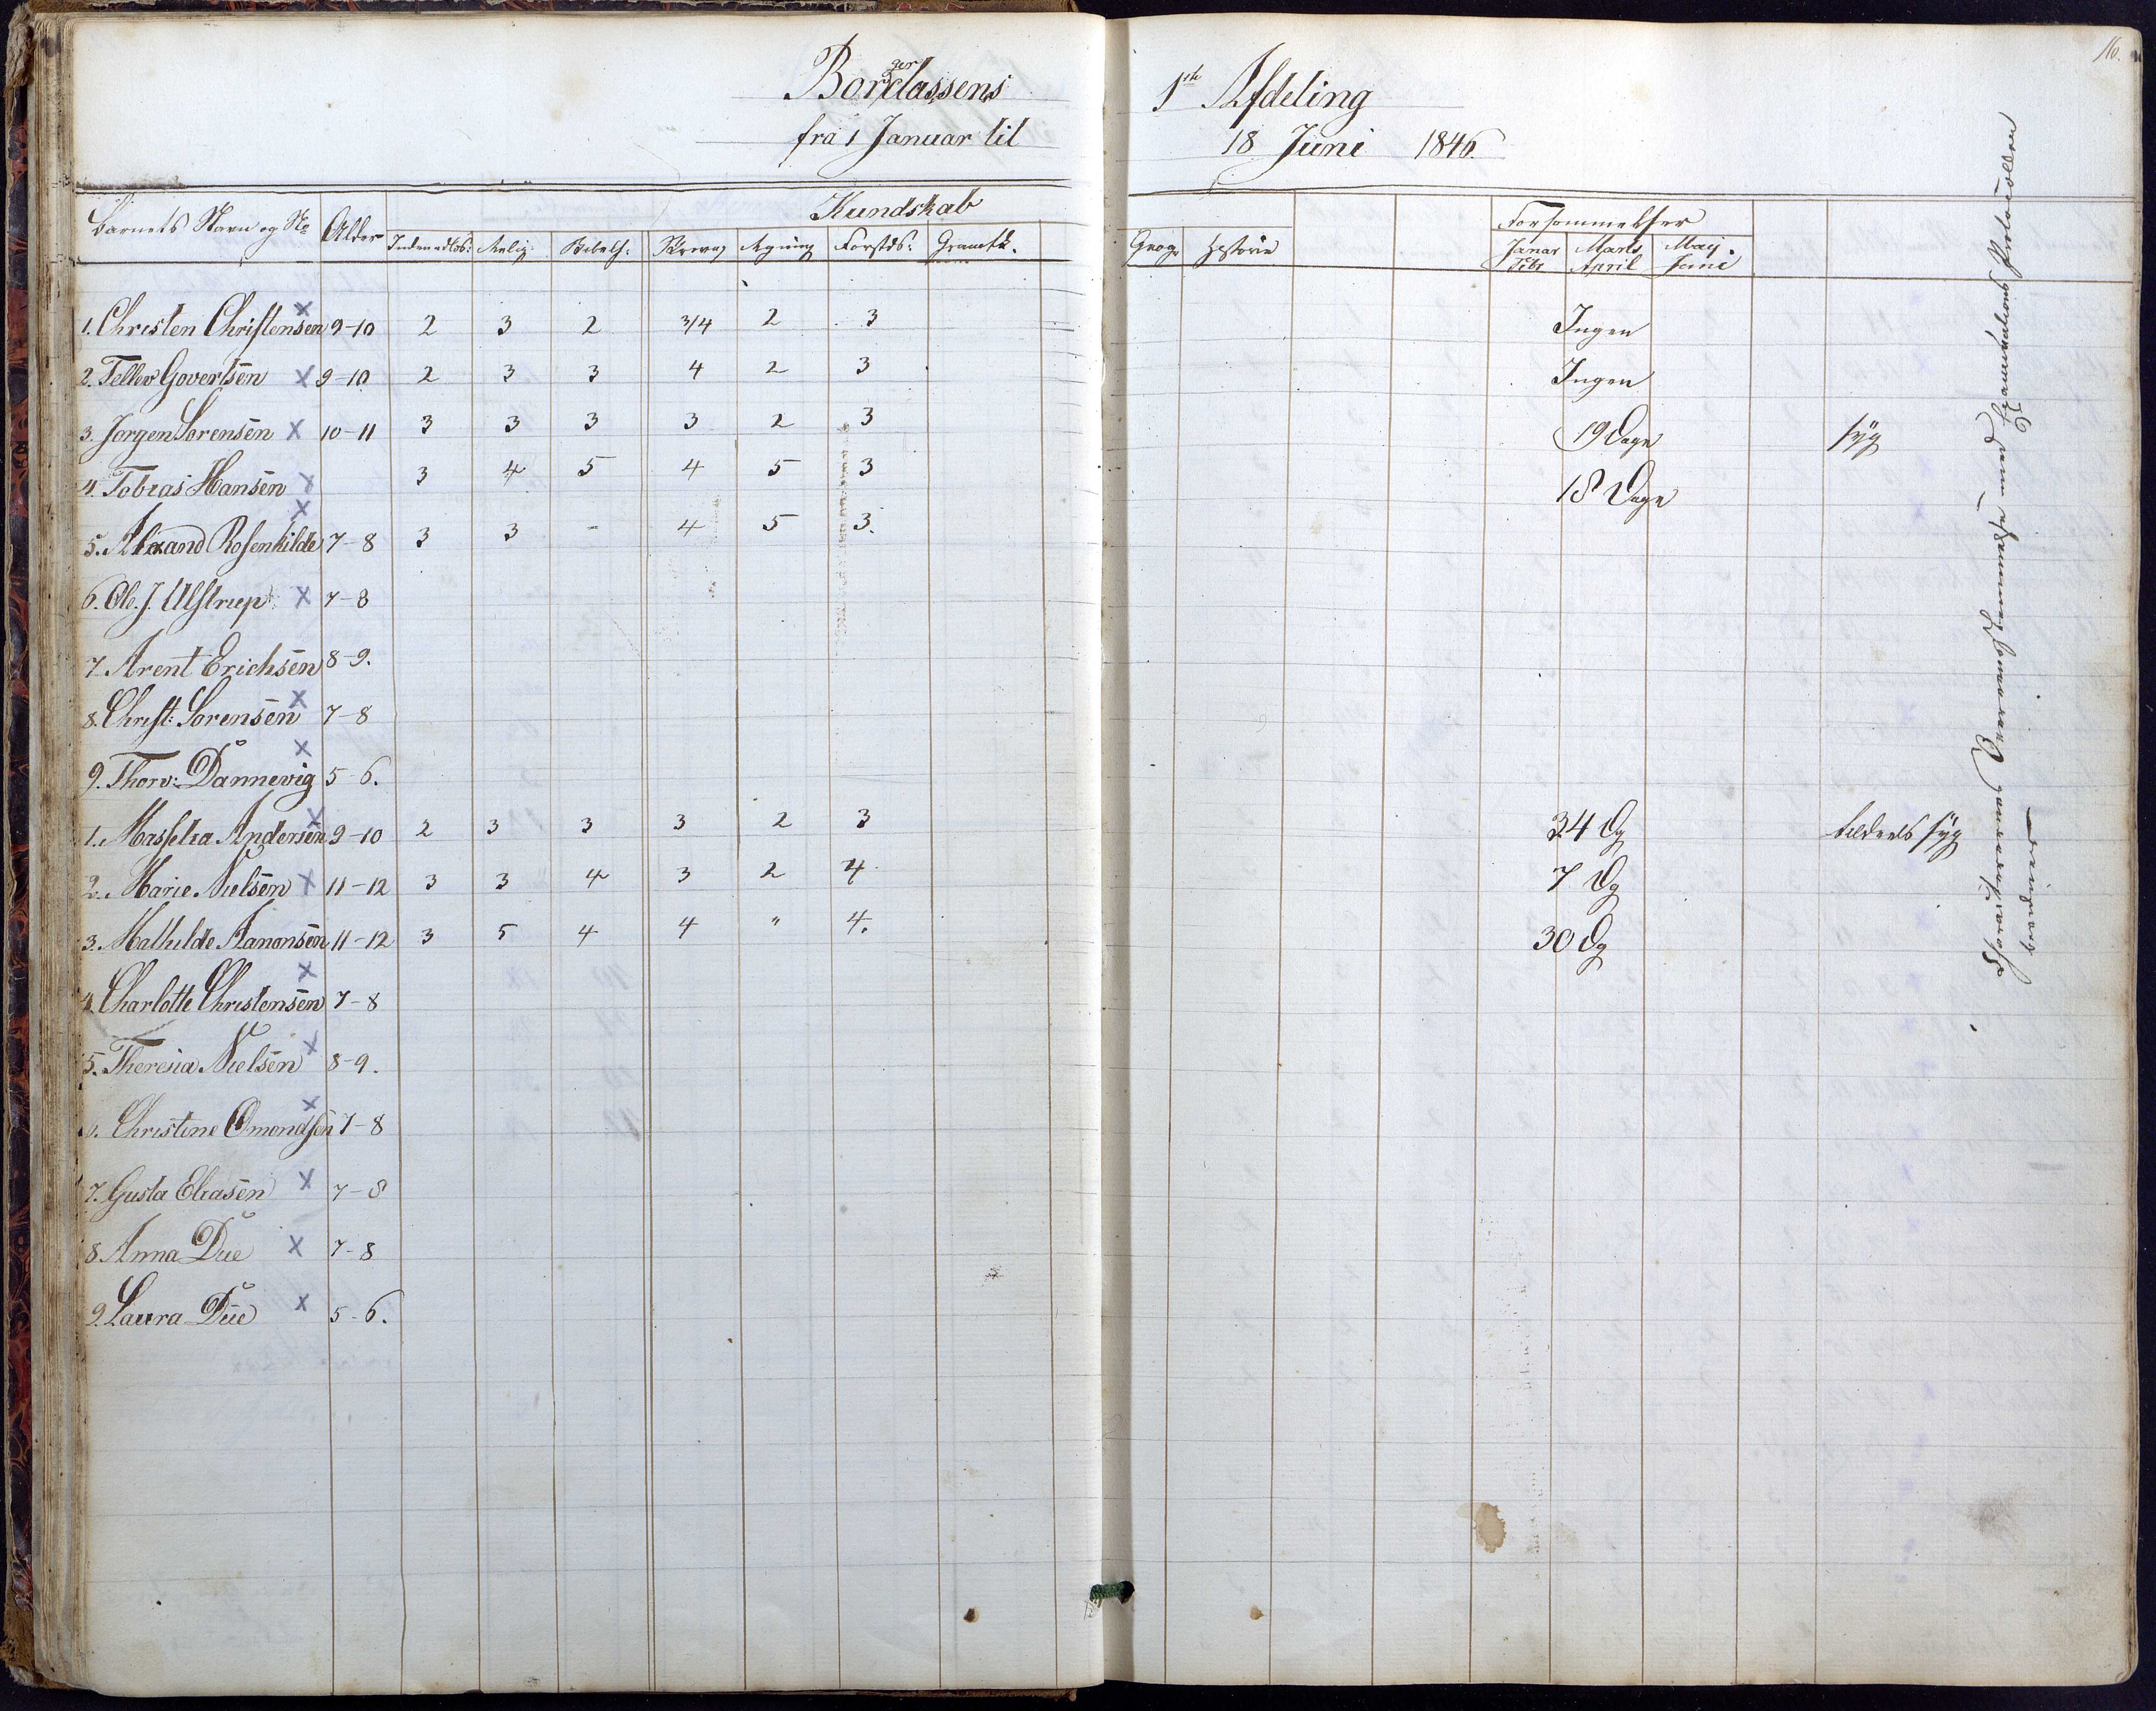 16.
Borgerclassens 1ste Afdeling
fra 1 Januar til 18 Juni 1846.
Barnets Navn og No Alder Kundskab Forsømmelser
Indenadlæs: Relig: Bibelh: Skrivng Regning Forstds: Gramtk. Geog. Historie Januar Febr Marts April May Juni
1. Christen Christensen X 9-10 2 3 2 3/4 2 3 Ingen
2. Tellev Govertsen X 9-10 2 3 3 4 2 3 Ingen
3. Jorgen Sorensen X 10-11 3 3 3 3 2 3 19 Dage syg
4. Tobias Hansen X 3 4 5 4 5 3 18 Dage
5. Rosenkilde X 7-8 3 3 - 4 5 3.
6. Ole. J. Ulstrup X 7-8
7. Arent Erichsen 8-9.
8. Christ: Sorensen X 7-8
9. Thorv: Dannevig X 5-6.
1. Andersen X 9-10 2 3 3 3 2 3 34 Dg tildeels syg
2. Marie Nielsen X 11-12 3 3 4 3 2 4. 7 Dg
3. Mathilde Aanonsen 11-12 3 5 4 4 " 4. 30 Dg
4. Charlotte Christensen X 7-8
5. Theresia Nielsen X 8-9.
Christine Omondsen X 7-8
7. Gusta Eliasen X 7-8
8. Anna Due X 7-8
9. Laura Due X 5-6.
Examinations Protocollen
Dannevig